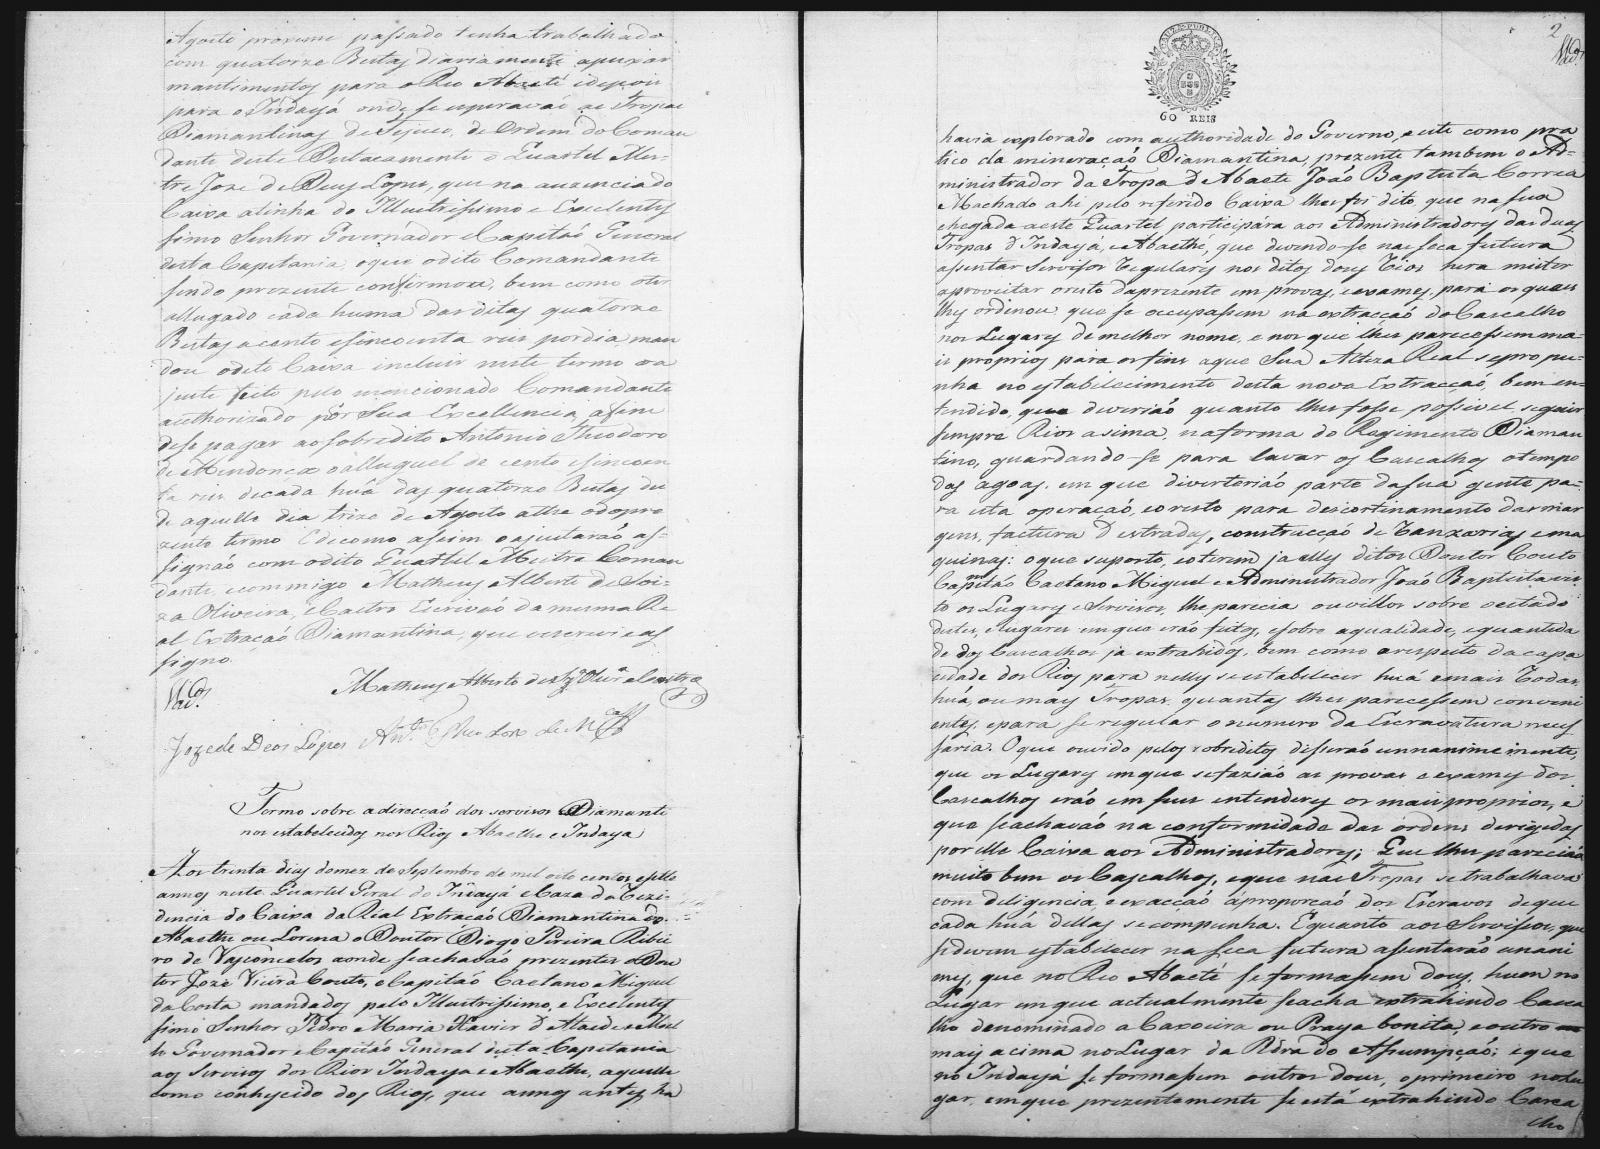 Agosto proximo passado tenha trabalhado
com quatorze Bestas diariamente apuxar
mantimentos para o Rio Abaeté edepois
para o Indayá onde se esperavaõ as Tropas
Diamantinas de Tejuco, de Ordem do Coman
dante deste Destacamento o Quartel Mes-
tre Jozé de Deos Lopes, que na auzencia do
Caixa atinha do Illustrissimo e Excelentis
simo Senhor Governador e Capitaõ General
desta Capitania, oque odito Comandante
sendo prezente confirmou, bem como ter
allugado cada huma das ditas quatorze
Bestas a cento esincoenta reis pordia man
dou odito Caixa incluir neste termo oa
juste feito pelo mencionado Comandante
authorizado por Sua Excellencia, afim
dese pagar ao sobredito Antonio Theodoro
de Mendonça oalluguel de cento esincoen
ta reis decada huã das quatorze Bestas des
de aquelle dia treze de Agosto athe odopre
zente termo Edecomo assim oajustaraõ as-
signaõ com odito Quartel Mestre Coman
dante, ecommigo Matheus Alberto de Soi-
za Oliveira, e Castro Escrivaõ da mesma Re
al Extraçaõ Diamantina, que oescrevi eas
signo.
Matheus Alberto de Sza Olivra e Castro
Joze de Deos Lopes Anto Theodoro de Mça
Termo sobre adirecçaõ dos servisos Diamanti
nos estabelecidos nos Rios Abaethe e Indaya
Aos trinta dias domez de Septembro de mil oito centos esette
annos neste Quartel Geral do Indayá e Caza da Rezi-
dencia do Caixa da Real Extraçaõ Diamantina do
Abaethe ou Lorena o Doutor Diogo Pereira Ribei
ro de Vasconcelos aonde seachavaõ prezentes o Dou
tor Jozé Vieira Couto, e Capitaõ Caetano Miguel
da Costa mandados pelo Illustrissimo, e Excelentis
simo Senhor Pedro Maria Xavier d'Ataide e Mel
lo Governador e Capitaõ General desta Capitania
aos Servisos dos Rios Indaya e Abaethe, aquelle
como conhecido dos Rios, que annos antes ha
2
60 REIS
havia explorado com authoridade do Governo, e este como pra
tico da mineraçaõ Diamantina, prezente tambem o Ad-
ministrador da Tropa d'Abaete Joaõ Baptista Correa
Machado ahi pelo referido Caixa lhes foi dito, que na sua
chegada a este Quartel participára aos Administradores das duas
Tropas d'Indayá, e Abaethé, que devendo-se na seca futura
assentar Servisos Regulares nos ditos dous Rios hera mister
aproveitar oresto daprezente em provas, e exames, para os quaes
lhes ordenou que se occupassem na extracçaõ do Cascalho
nos Lugares de melhor nome, e nos que lhes parecessem ma
is proprios para os fins aque Sua Alteza Real se propu-
nha no estabelecimento desta nova Extracçaõ, bem en-
tendido, que deveriaõ quanto lhes fosse possivel seguir
sempre Rios asima, na forma do Regimento Diaman
tino, guardando-se para lavar os Cascalhos o tempo
das agoas, em que divertiriaõ parte dasua gente pa-
ra esta operaçaõ, eoresto para descortinamento das mar
gens, factura d'estradas, construcçaõ de Ranxarias e ma
quinas: oque suposto, eoterem ja elles ditos Doutor Couto
Capitaõ Caetano Miguel e Administrador Joaõ Baptista vis
to os Lugares e Servisos, lhe parecia ouvillos sobre oestado
destes, e lugares emque eraõ feitos, esobre aqualidade, equantida
de dos Cascalhos ja extrahidos, bem como arespeito dacapa
cidade dos Rios para nelles se estabelecer huã e mais Rodas
huã, ou mais Tropas, quantas lhes parecessem conveni
entes, epara se regular o numero da Escravatura neces
saria. O que ouvido pelos sobreditos disseraõ unanimemente,
que os Lugares emque sefaziaõ as provas e exames dos
Cascalhos eraõ em seus entenderes os mais proprios, e
que seachavaõ na conformidade das ordens dirigidas
por elle Caixa aos Administradores; Que lhes pareciaõ
muito bem os Cascalhos, eque nas Tropas se trabalhava
com diligencia e exacçaõ áproporçaõ dos Escravos de que
cada huã dellas se compunha. Equanto aos Servissos, que
sedevem estabelecer na seca futura assentaraõ unani
mes, que no Rio Abaeté se formassem dous, hum no
Lugar emque actualmente seacha extrahindo Casca
lho denominado a Caxoeira ou Praya bonita, eoutro
mais acima no Lugar da Pedra do Assumpçaõ; eque
no Indayá se formassem outros dous, oprimeiro no Lu
gar, emque prezentemente se está extrahindo Casca
lho